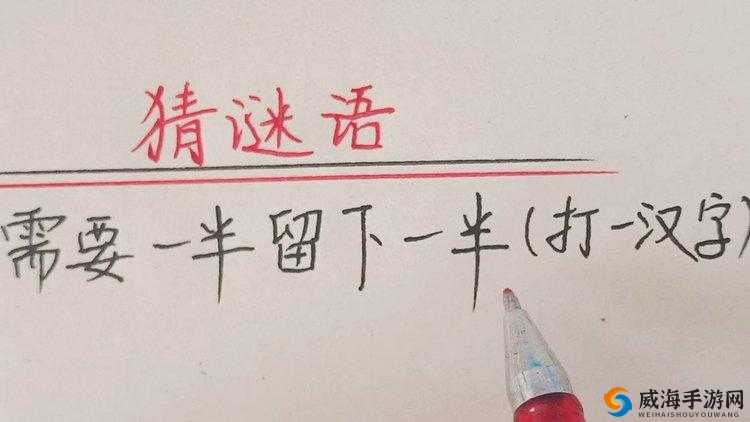 猜谜语
需要一半留下一半(打一汉字)
威海手游网
WEIHAISHOUYOUWANG